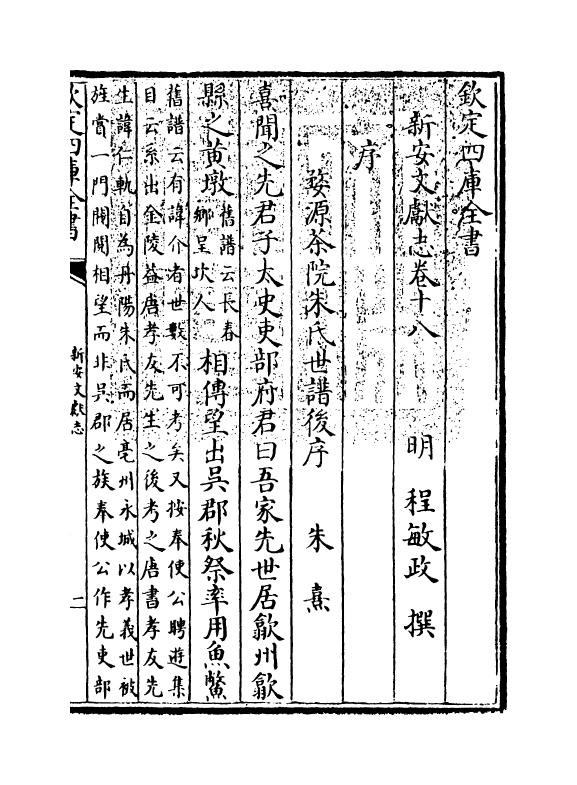 欽定四庫全書
新安文獻志卷十八
明 程敏政 撰
序
婺源茶院朱氏世譜後序 朱熹
熹聞之先君子太史吏部府君曰吾家先世居歙州歙
縣之黃墩
舊譜云長春
鄉呈坎人
相傳望出吳郡秋祭率用魚鱉
舊譜云有諱介者世數不可考矣又按奉使公聘遊集
自云系出金陵葢唐孝友先生之後考之唐書孝友先
生諱仁軌自為丹陽朱氏而居亳州永城以孝義世被
旌賞一門閥閲相望而非吳郡之族奉使公作先吏部
欽定四庫全書
新安文獻志
二